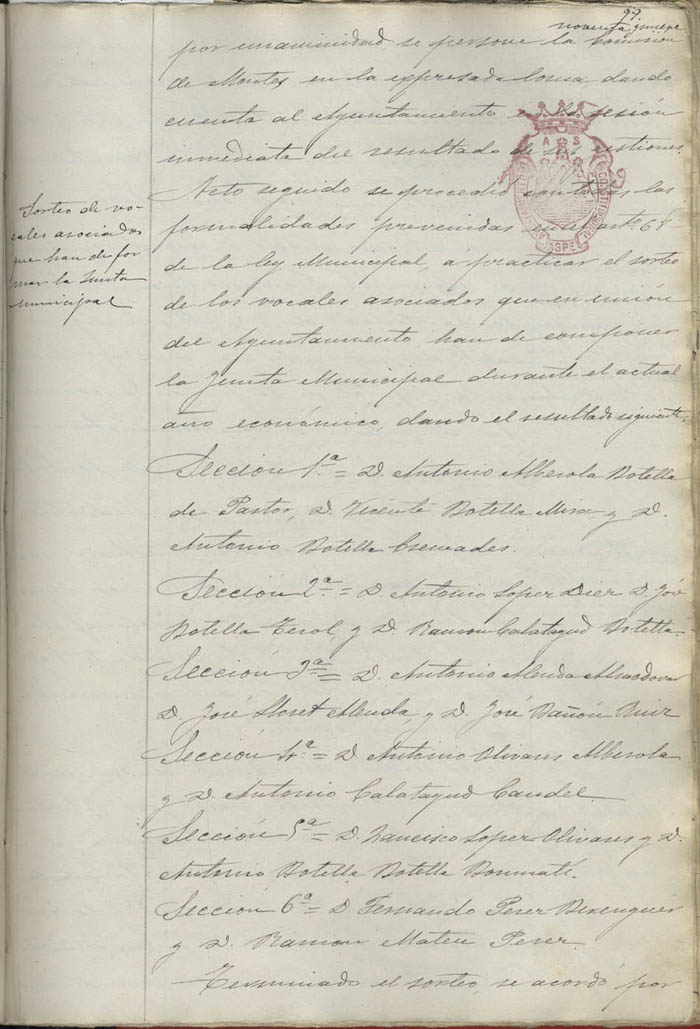 99
noventa y nueve
por unanimidad se persone la Comisión
de Montes en la expresada loma, dando
cuenta al Ayuntamiento en la sesión
inmediata del resultado de sus gestiones.
Sorteo de vo-
cales asociados
que han de for
mar la Junta
Municipal
Acto seguido se procedió con todas las
formalidades prevenidas en el artº 68
de la ley Municipal, a practicar el sorteo
de los vocales asociados que en unión
del Ayuntamiento han de componer
la Junta Municipal durante el actual
año económico, dando el resultado siguiente.
Sección 1ª = D. Antonio Alberola Botella
de Pastor, D. Vicente Botella Mira y D.
Antonio Botella Cremades.
Sección 2ª = D. Antonio Soper Dier D. José
Botella Terol, y D. Ramon Calatayud Botella
Sección 3ª = D. Antonio Alenda Almodovar
D. José Lloret Alenda, y D. José Bañón Ruiz
Sección 4ª = D. Antonio Olivares Alberola
y D. Antonio Calatayud Candel.
Sección 5ª = D. Francisco Soper Olivares y D.
Antonio Botella Botella Bonmatí.
Sección 6ª = D Fernando Perer Berenguer
y D. Ramon Mateu Perer
Terminado el sorteo, se acordó por
A S
CONSTITUCIONAL
ASPE